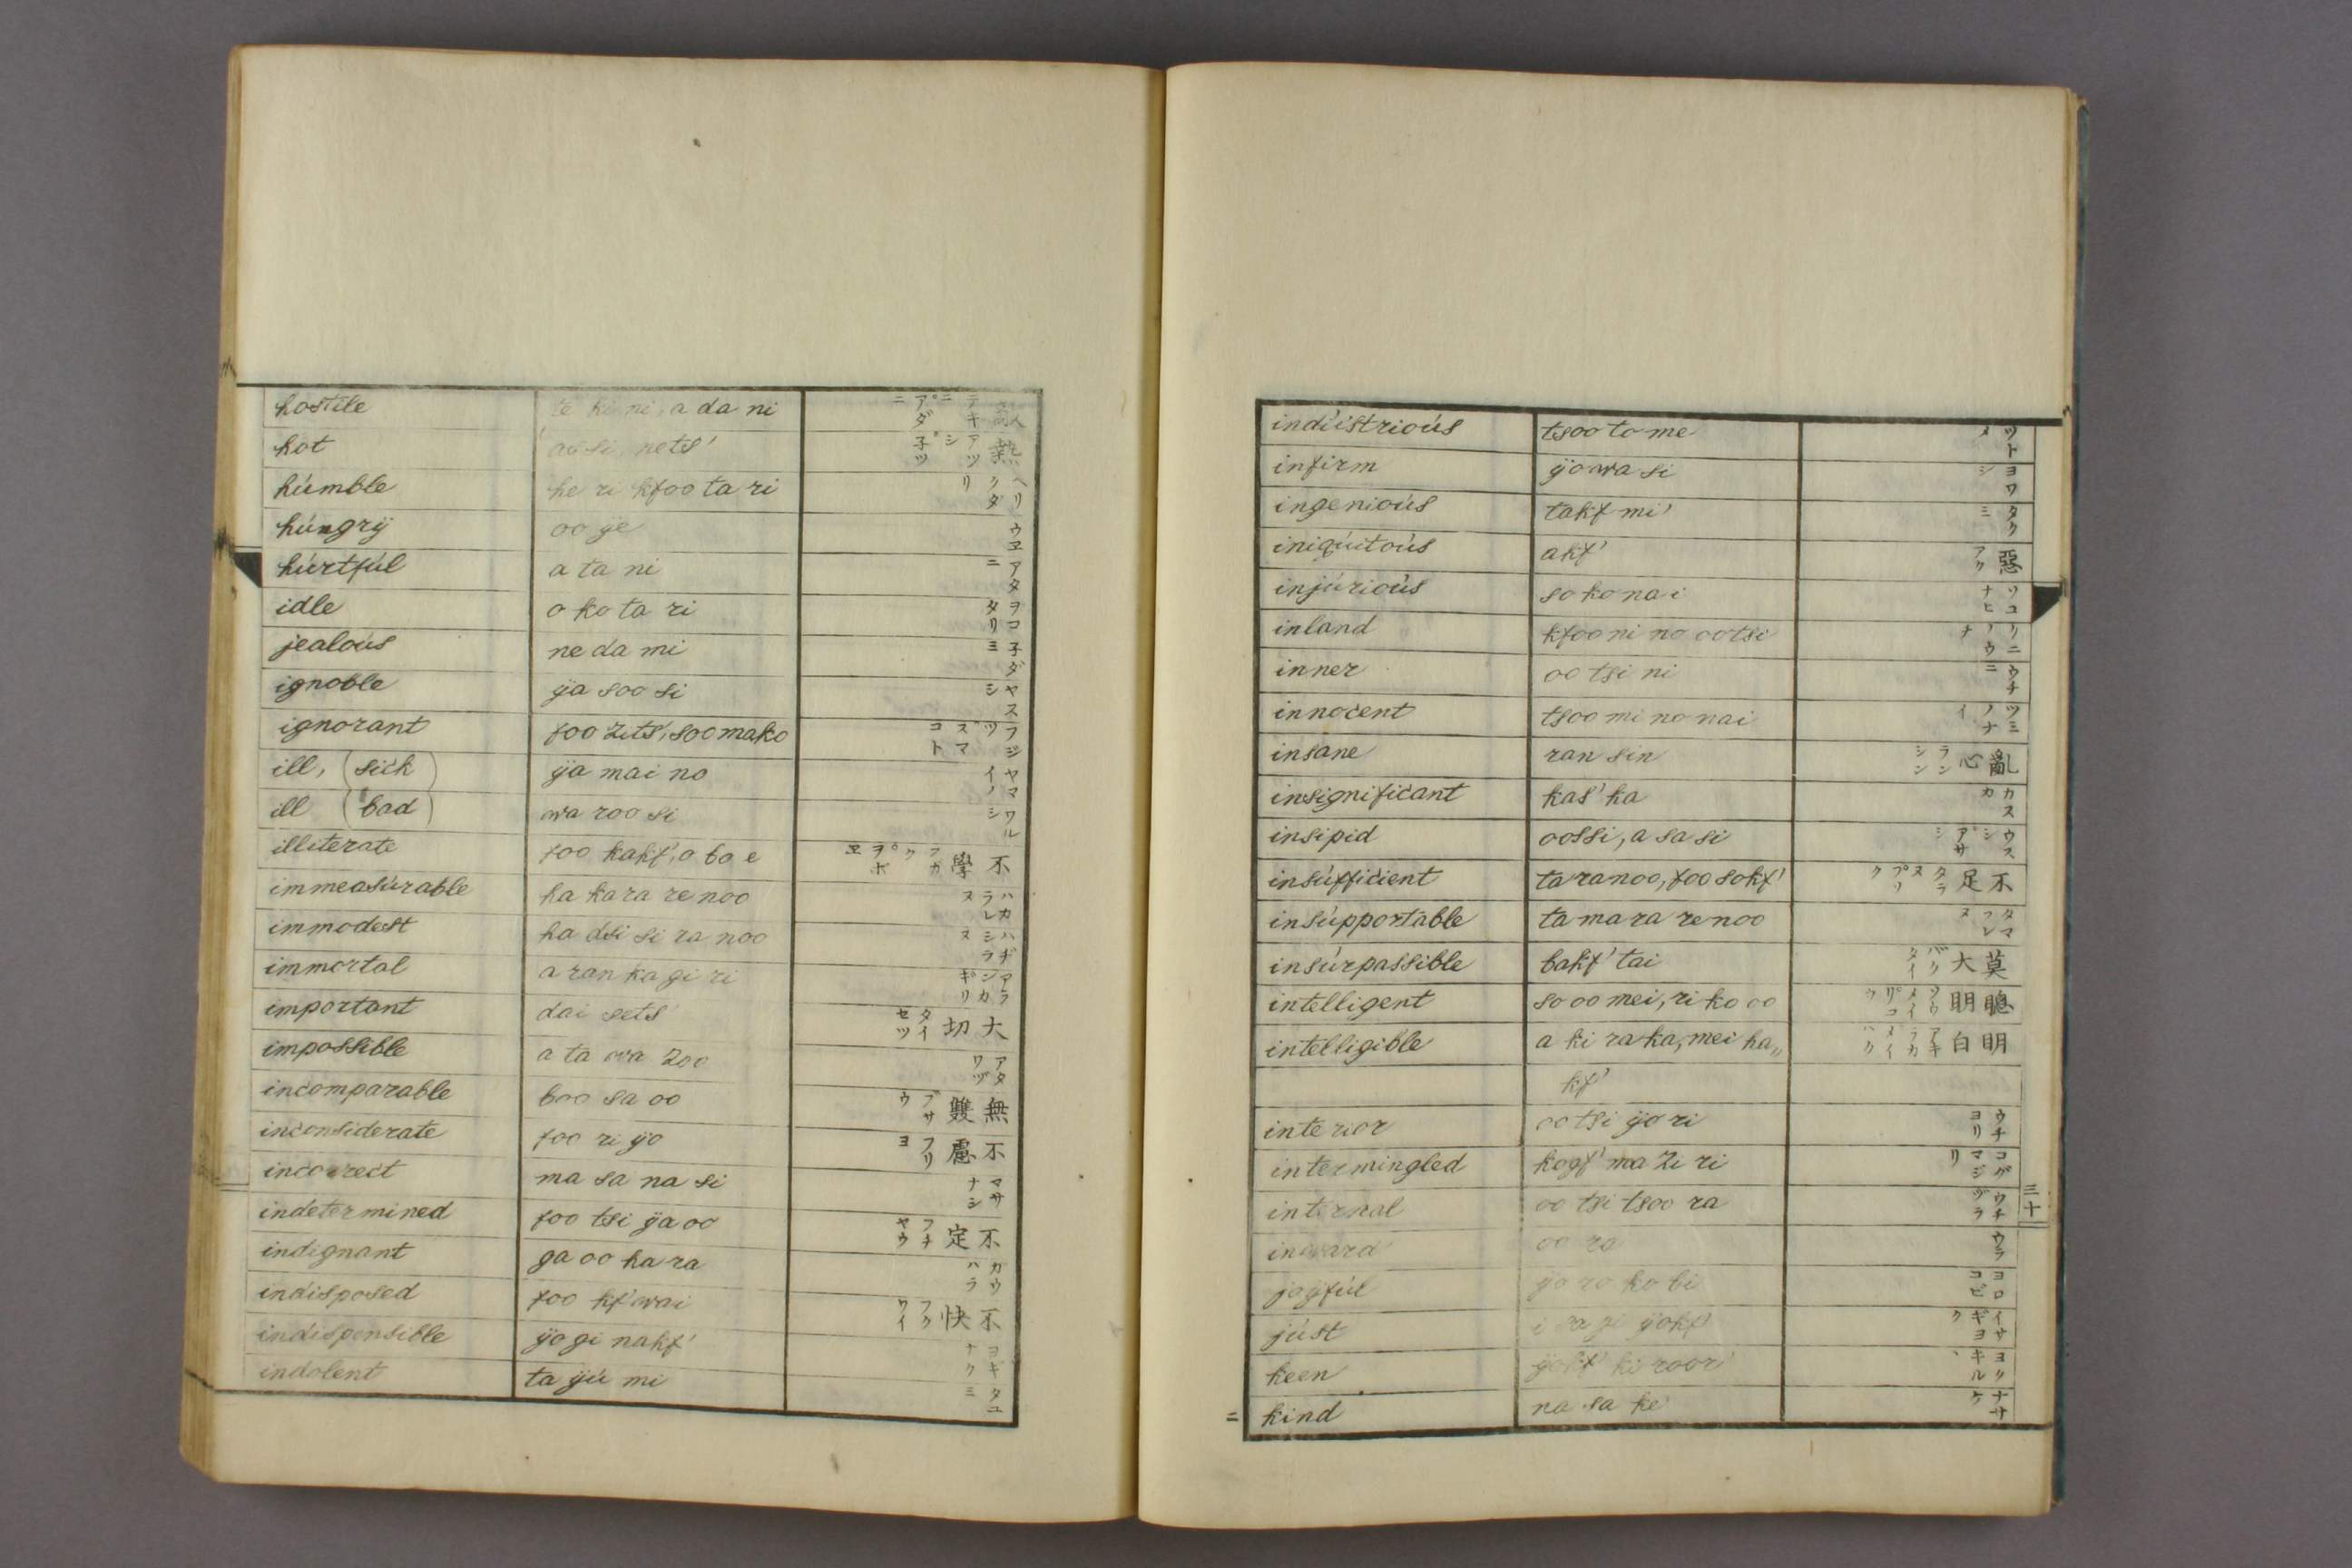 hostile te ki ni, a da ni 敵 テキニ アダニ
hot at si, nets' 熱 アツシ 子ツ
húmble he ri kfoo ta ri ヘリクダリ
húngrÿ oo ÿe ウヱ
húrtfúl a ta ni アタニ
idle o ko ta ri ヲコタリ
jealoús ne da mi 子ダミ
ignoble ÿa soo si ヤスシ
ignorant foo zits', soo mako フジツ スマコト
ill, (sick) ÿa mai no ヤマイノ
ill (bad) wa roo si ワルシ
illiterate foo kakf', o bo e 不學 フカク ヲボヱ
immeasúrable ha ka ra re noo ハカラレヌ
immodest ha dsi si ra noo ハヂシラヌ
immortal a ran ka gi ri アランカギリ
important dai sets' 大切 タイセツ
impossible a ta wa zoo アタワヅ
incomparable boo sa oo 無雙 ブサウ
inconsiderate foo ri ÿo 不慮 フリヨ
incorrect ma sa na si マサナシ
indetermined foo tsi ÿa oo 不定 フチヤウ
indignant ga oo ha ra ガウハラ
indisposed foo kf' wai 不快 フクワイ
indispensible ÿo gi nakf' ヨギナク
indolent ta ÿú mi タユミ
indústrioús tsoo to me ツトメ
infirm ÿo wa si ヨワシ
ingenioús takf mi' タクミ
iniqúitoús akf' 惡 アク
injúrioús so ko na i ソコナヒ
inland kfoo ni no oo tsi
inner oo tsi ni ウチニ
innocent tsoo mi no nai ツミノナイ
insane ran sin 亂心 ランシン
insignificant kas' ka カスカ
insipid oossi, a sa si ウスシ アサシ
insúfficient ta ra noo, foo sokf' 不足 タラヌ
insúpportable ta ma ra re noo
insúrpassible bakf' tai 莫大 バクタイ
intelligent so oo mei, ri ko oo 聰明 ソウメイ リコウ
intelligible a ki ra ka, mei ha〃 明白 アキラカ メイハク
kf'
interior oo tsi ÿo ri ウチヨリ
intermingled kogf' ma zi ri コグマジリ
internal oo tsi tsoo ra ウチヅラ
inward oo ra ウラ
三十
joÿfúl ÿo ro ko bi ヨロコビ
júst i sa gi ÿokf' イサギヨク
keen ÿokf' ki roor'
kind na sa ke ナサケ